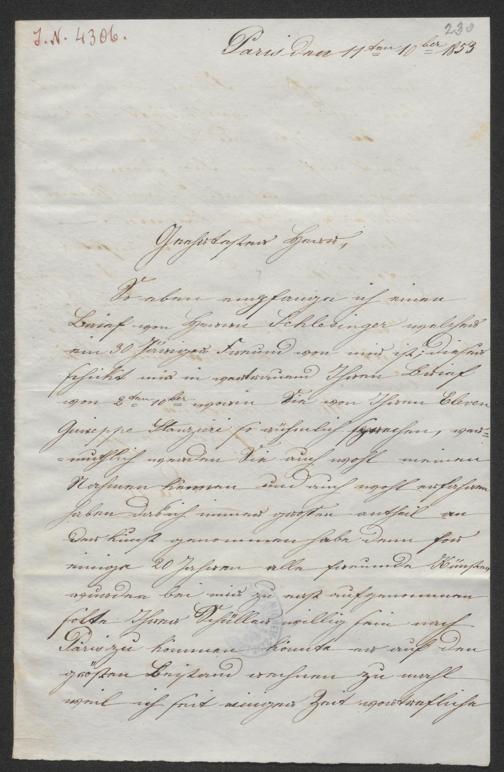 I. N. 4306.
230
Paris den 11ten 10ber 1853
Geehrtester Herr,
So eben empfange ich einen
Brief von Herrn Schlesinger welcher
ein 30 Jähriger Freund von mir ist, dieser
schickt mir in vertrauend Ihren Brief
von 2ten 10ber worin Sie von Ihren Eleven
Giuseppe so rühmlich sprechen, ver=
=muthlich werden Sie auch wohl meinen
Nahmen kennen und auch wohl erfahren
haben daß ich immer großen antheil an
der Kunst genommen habe denn for
einige 20 Jahren alle freunde Künstler
wurden bei mir zu erst aufgenommen
solte Ihrer Schüller willig sein nach
Paris zu kommen könnte er auf den
größten Beistand rechnen zu mahl
weil ich seit einiger Zeit vortrefliche